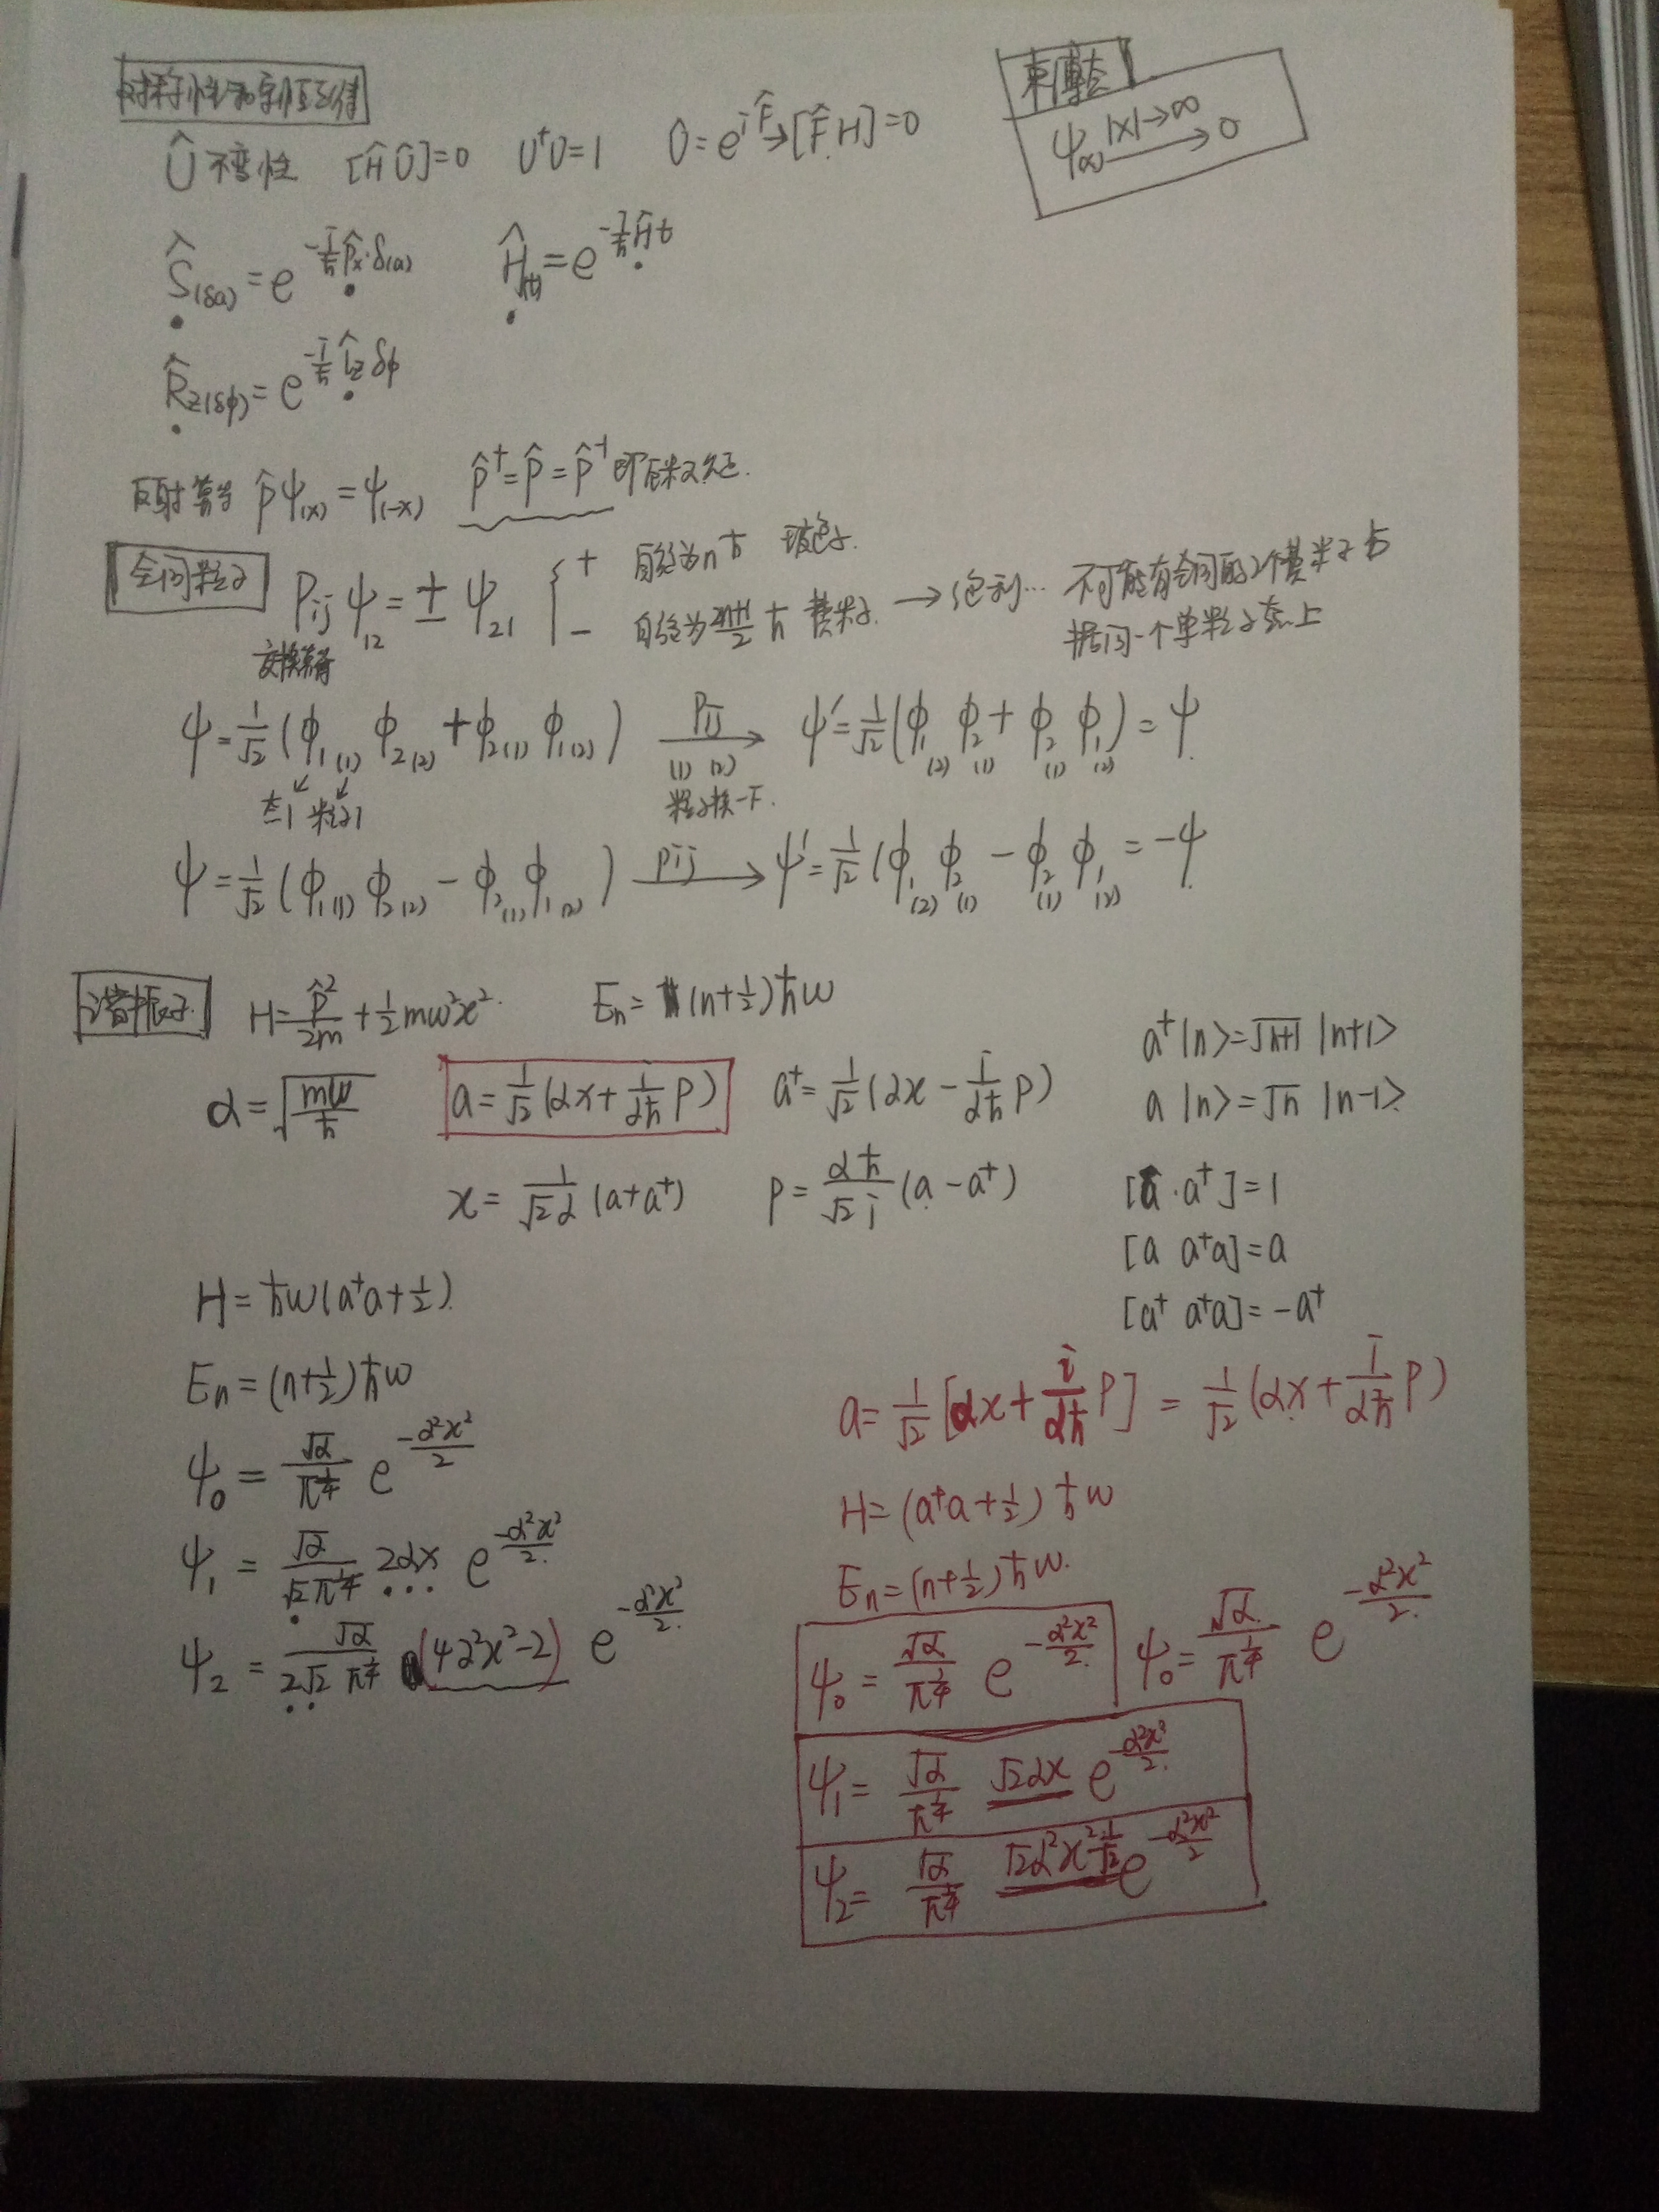 对称性和守恒律
束缚态
ψ(x) |x|→∞ ⟶ 0
Û 不变性 [Ĥ Û]=0 U⁺U=1 Û=e^{iF̂} → [F̂.H]=0
Ŝ(δa) = e^{-i/ħ p̂x·δ(a)} Ĥ(t) = e^{-i/ħ Ĥt}
R̂z(δφ) = e^{-i/ħ l̂z δφ}
反射算符 p̂ψ(x) = ψ(-x) p̂⁺ = p̂ = p̂⁻¹ 即厄米又幺正.
全同粒子 Pij ψ12 = ± ψ21 { + 自旋为nħ 玻色子.
- 自旋为 (2n+1)/2 ħ 费米子. → 泡利… 不可能有全同的2个费米子占
据同一个单粒子态上
交换算符
ψ = 1/√2 (ϕ1(1) ϕ2(2) + ϕ2(1) ϕ1(2)) Pij ⟶ ψ' = 1/√2 (ϕ1(2) ϕ2(1) + ϕ2(1) ϕ1(2)) = ψ
态1 粒子1 (1) (2) 粒子换一下.
ψ = 1/√2 (ϕ1(1) ϕ2(2) - ϕ2(1) ϕ1(2)) Pij ⟶ ψ' = 1/√2 (ϕ1(2) ϕ2(1) - ϕ2(1) ϕ1(2) = -ψ
谐振子. H = p̂²/2m + 1/2 mω²x². En = (n+1/2)ħω
a⁺|n> = √(n+1) |n+1>
α = √(mω/ħ) a = 1/√2 (αx + i/(αħ) p) a⁺ = 1/√2 (αx - i/(αħ) p)
a |n> = √n |n-1>
x = 1/(√2 α) (a+a⁺) p = αħ/(√2 i) (a-a⁺)
[a.a⁺] = 1
[a a⁺a] = a
[a⁺ a⁺a] = -a⁺
H = ħω(a⁺a + 1/2).
En = (n+1/2)ħω
ψ0 = √α/π^{1/4} e^{-α²x²/2}
ψ1 = √α/(√2 π^{1/4}) 2αx e^{-α²x²/2}
ψ2 = √α/(2√2 π^{1/4}) (4α²x²-2) e^{-α²x²/2}
a = 1/√2 [αx + i/(αħ) p] = 1/√2 (αx + i/(αħ) p)
H = (a⁺a + 1/2) ħω
En = (n+1/2)ħω.
ψ0 = √α/π^{1/4} e^{-α²x²/2} ψ0 = √α/π^{1/4} e^{-α²x²/2}
ψ1 = √α/π^{1/4} √2αx e^{-α²x²/2}
ψ2 = √α/π^{1/4} √2α²x² - 1/√2 e^{-α²x²/2}